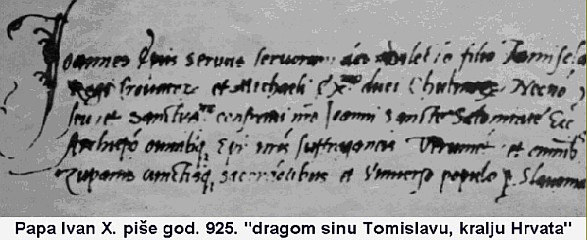 Joannes Epus servus servorum dei dilecto filio Tamisclao
Regi et Michaeli duci Necnō
et sanctiss confratri nro Ioanni sanctae Salonitane Ecc
Archiepō omnibq Epis nris suffraganeis Verum et omnib
Zupanis cunctisq sacerdotibus et Universo populo p Slavonia
Papa Ivan X. piše god. 925. "dragom sinu Tomislavu, kralju Hrvata"